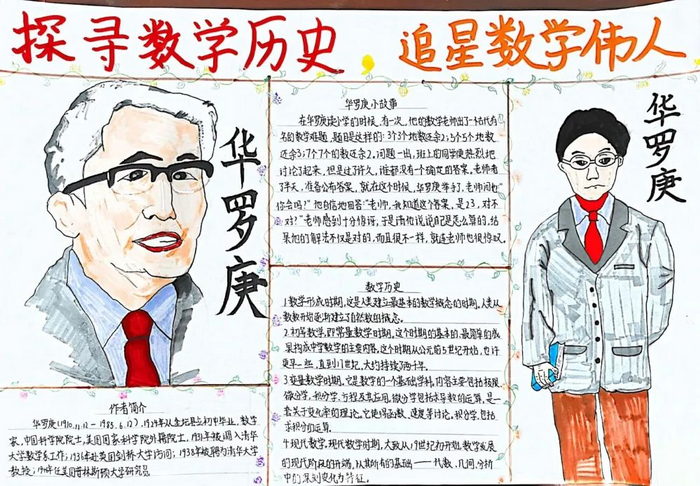 探寻数学历史，追星数学伟人
华罗庚
作者简介
华罗庚(1910.11.12—1985.6.12)，1924年从金坛县立初中毕业，数学
家，中国科学院院士，美国国家科学院外籍院士，1931年被调入清华
大学数学系工作；1936年赴英国剑桥大学访问；1938年被聘为清华大学
教授；1946年任美国普林斯顿大学研究员
华罗庚小故事
在华罗庚读小学的时候，有一次，他的数学老师出了一个古代有
名的数学难题，题目是这样的：3个3个地数还余2；5个5个地数
还余3；7个7个的数还余2。问题一出，班上的同学便热烈地
讨论了起来，但是过了许久，谁都没有个确定的答案。老师看
了半天，准备公布答案，就在这个时候，华罗庚举手了。老师问他
你会吗？"他自信地回答"老师，我知道这个答案，是23，对不
对？"老师感到十分惊讶，于是请他说说自己是怎么算的，结
果他的解法不仅是对的，而且很不一样，就连老师也很惊叹。
数学历史
1.数学形成时期，这是人类建立最基本的数学概念的时期，人类从
数数开始逐渐建立了自然数的概念。
2.初等数学，即常量数学时期，这个时期的基本的、最简单的成
果构成中学数学的主要内容，这个时期从公元前5世纪开始，也许
更早一些，直到17世纪，大约持续了两千年。
3.变量数学时期，它是数学的一个基础学科，内容主要包括极限
微分学，积分学，方程及其应用，微分学包括求导数的运算，是一
套关于变化率的理论。它使得函数，速度等讨论。积分学，包括
求积分的运算
4.现代数学，现代数学时期，大致从19世纪初开始，数学发展
的现代阶段的开端，从其所有的基础——代数，几何，分析
中的深刻变化为特征。
华罗庚